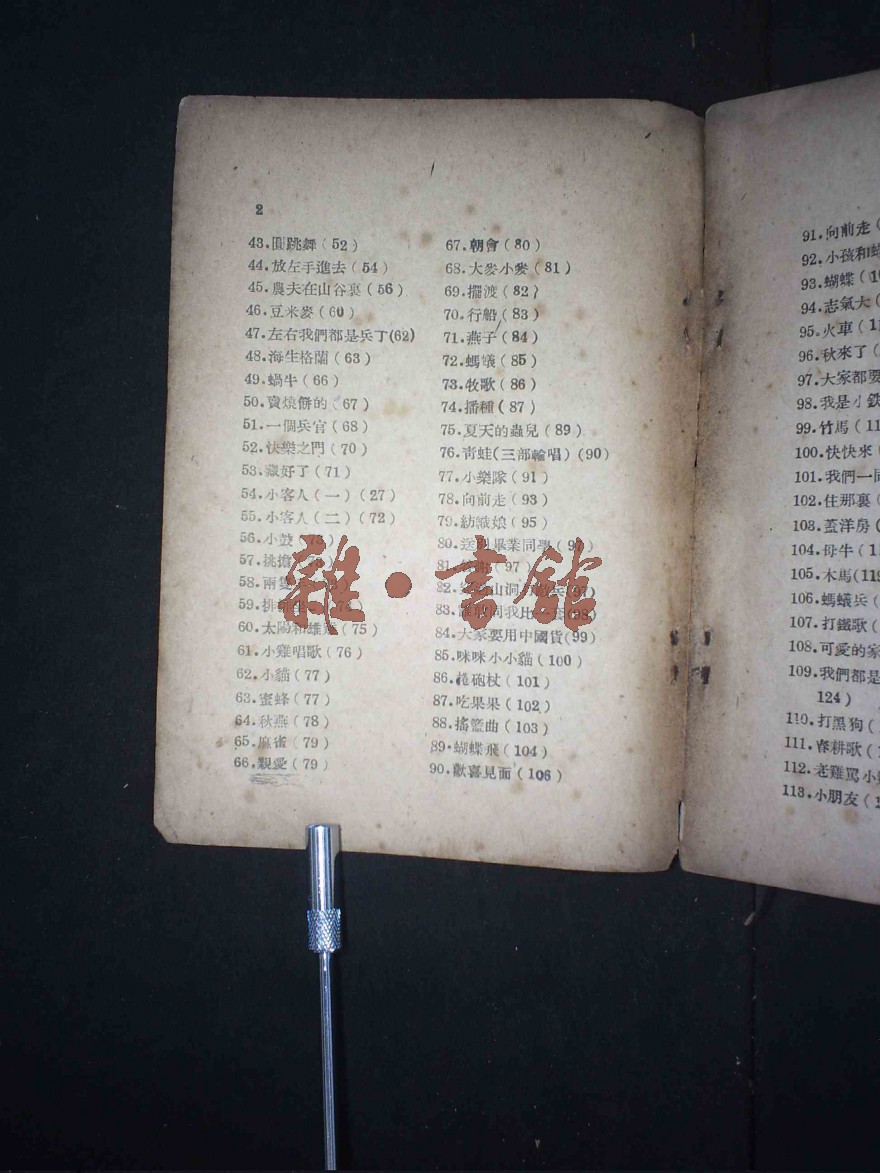 2
43.圓跳舞(52)
44.放左手進去(54)
45.農夫在山谷裏(56)
46.豆米麥(60)
47.左右我們都是兵丁(62)
48.海生格蘭(63)
49.蝸牛(66)
50.賣燒餅的(67)
51.一個兵官(68)
52.快樂之門(70)
53.藏好了(71)
54.小客人(一)(27)
55.小客人(二)(72)
56.小鼓(73)
57.挑擔
58.兩隻
59.排
60.太陽和雄雞(75)
61.小雞唱歌(76)
62.小貓(77)
63.蜜蜂(77)
64.秋燕(78)
65.麻雀(79)
66.親愛(79)
67.朝會(80)
68.大麥小麥(81)
69.擺渡(82)
70.行船(83)
71.燕子(84)
72.螞蟻(85)
73.牧歌(86)
74.播種(87)
75.夏天的蟲兒(89)
76.靑蛙(三部輪唱)(90)
77.小樂隊(91)
78.向前走(93)
79.紡織娘(95)
80.送別畢業同學(97)
81.(97)
82.山洞(97)
83.誰敢同我比(98)
84.大家要用中國貨(99)
85.咪咪小小貓(100)
86.砲杖(101)
87.吃果果(102)
88.搖籃曲(103)
89.蝴蝶飛(104)
90.歡喜見面(106)
雜·書館
91.向前走(
92.小孩和
93.蝴蝶(10
94.志氣大(
95.火車(1
96.秋來了(
97.大家都要
98.我是小鉄
99.竹馬(11
100.快快來(
101.我們一同
102.住那裏(
103.蓋洋房(
104.母牛(1
105.木馬(119
106.螞蟻兵(
107.打鐵歌(
108.可愛的家
109.我們都是
124)
110.打黑狗(
111.春耕歌(
112.老雞罵小
113.小朋友(1